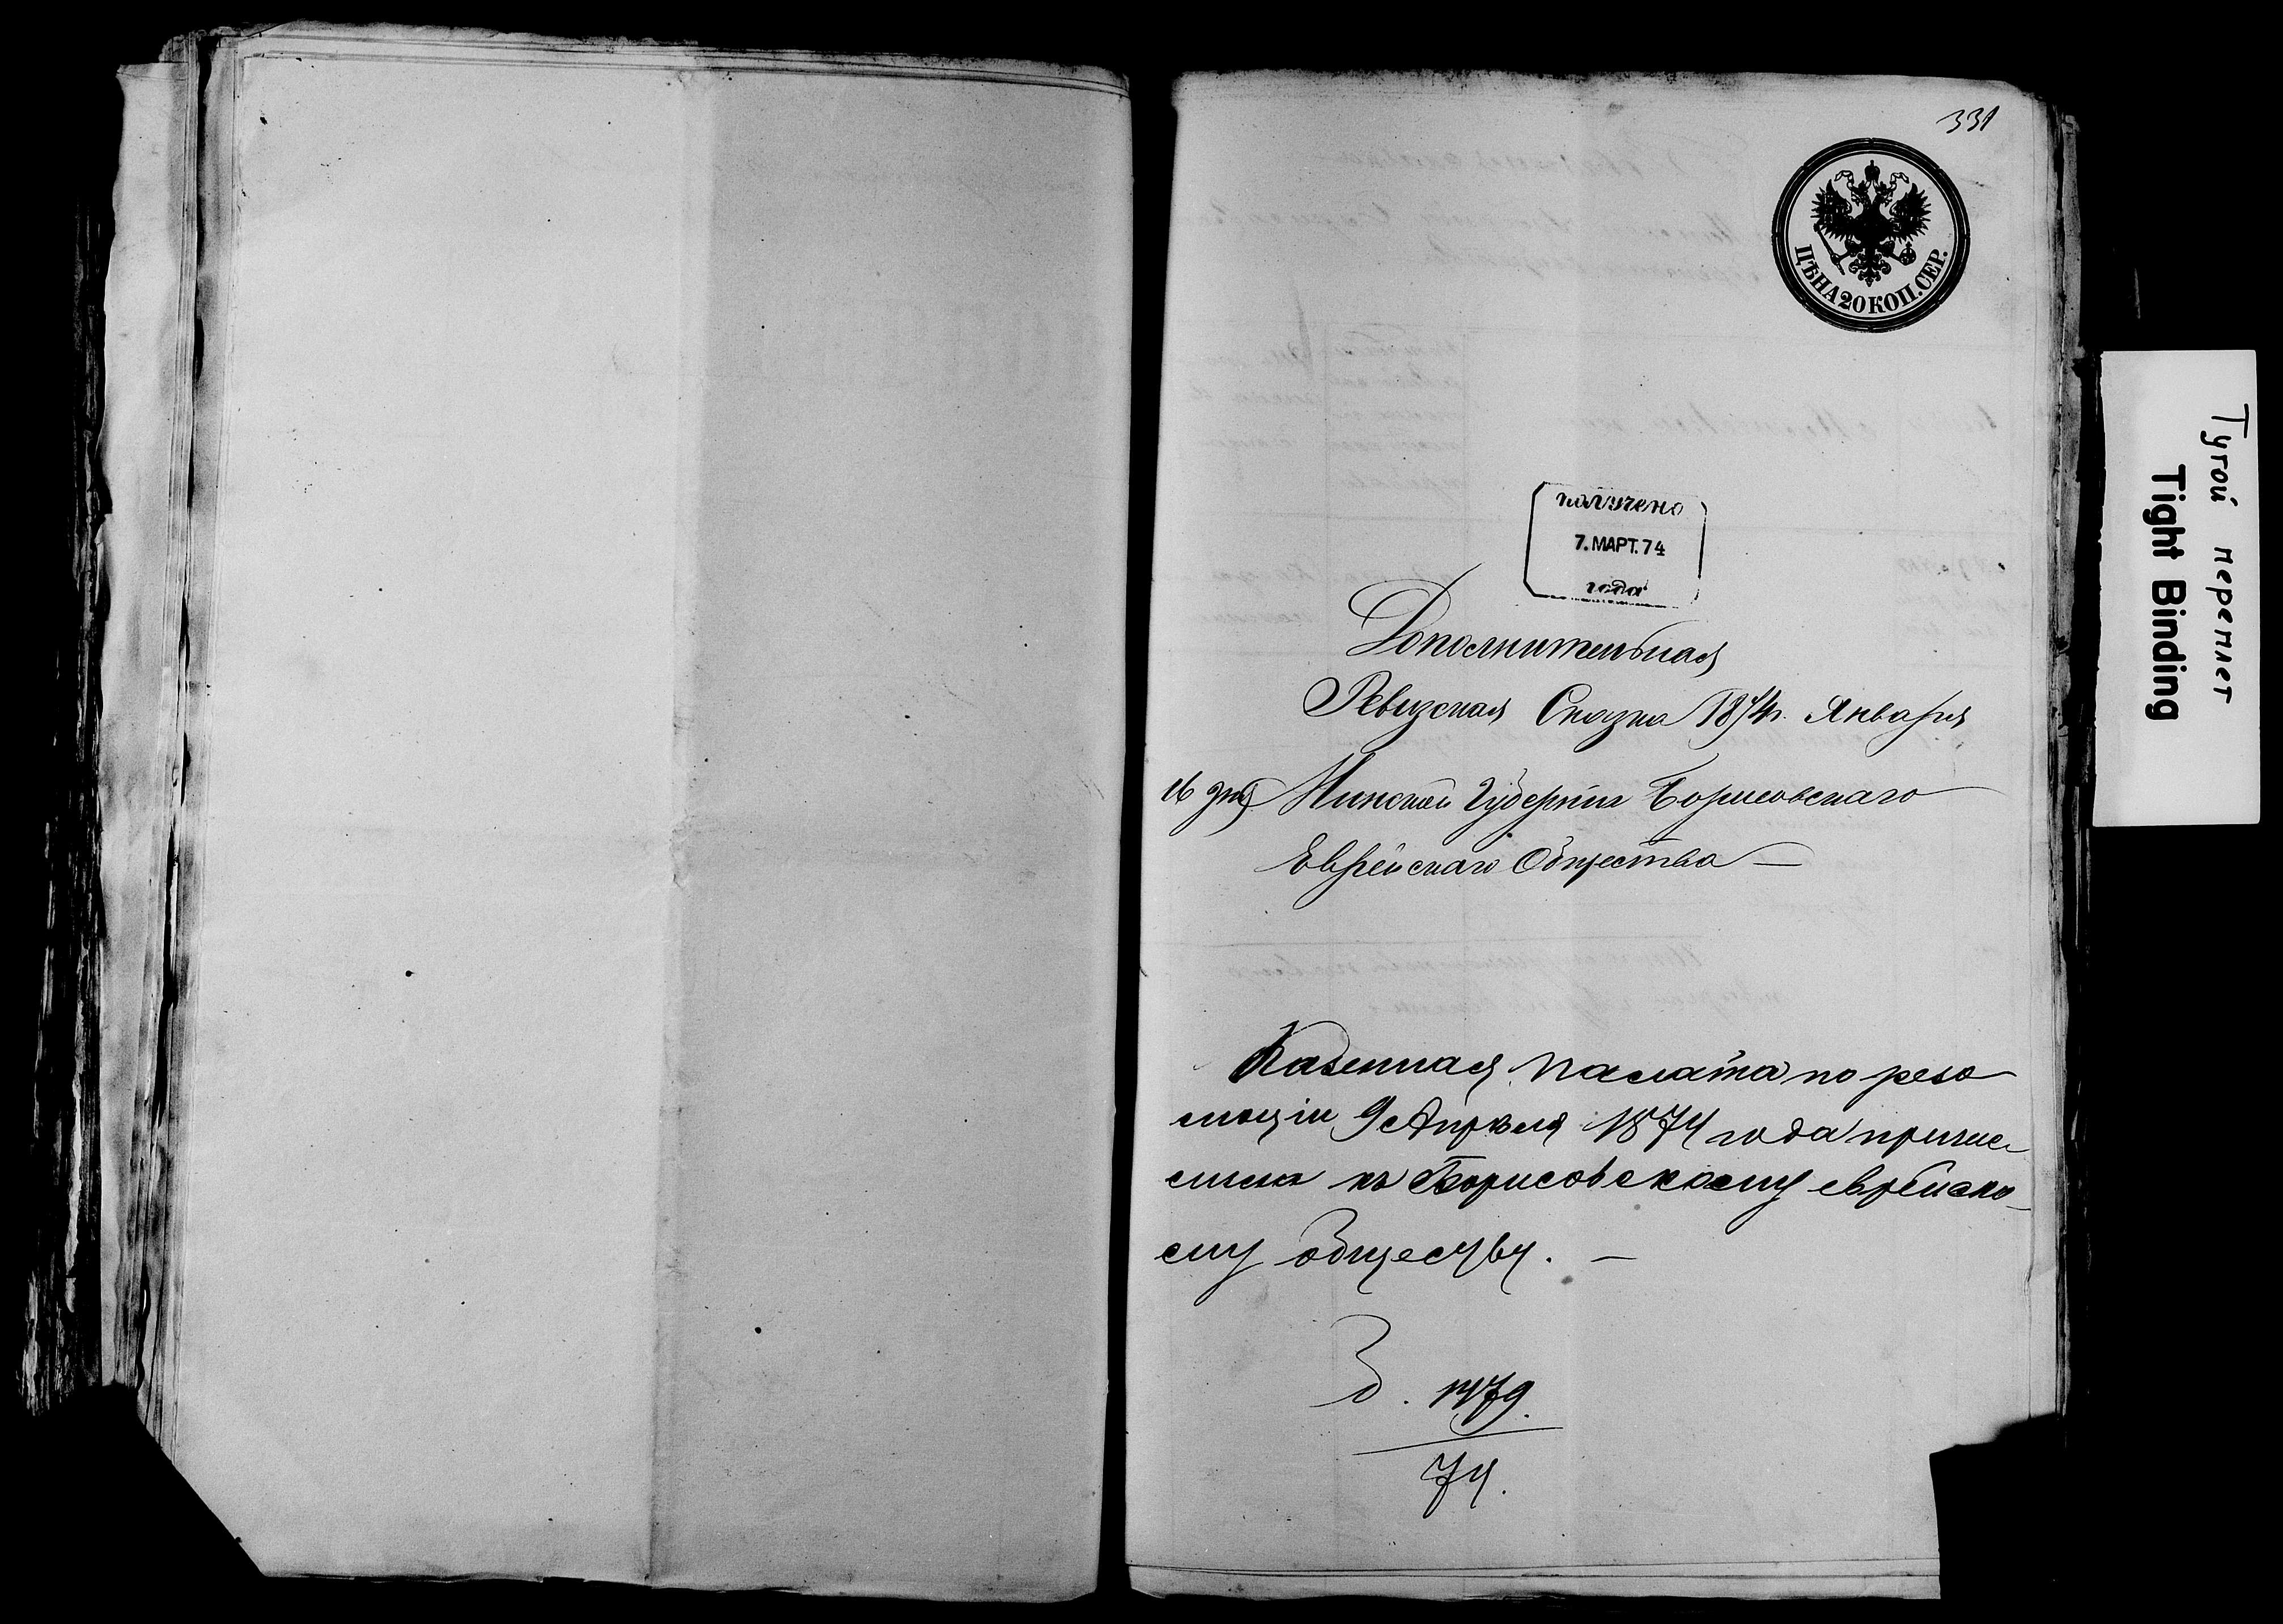 331
ЦѢНА 20 КОП. СЕР.
получено
7. МАРТ. 74
года
Дополнительная
Ревизская Сказка 1874г. Января
16 дня Минской Губерніи Борисовскаго
Еврейскаго Общества —
Казенная Палата по резо
люціи 9 Апрѣля 1874 года причис
лила къ Борисовскому еврейско-
му обществу. —
1479.
74.
Тугой переплет
Tight Binding